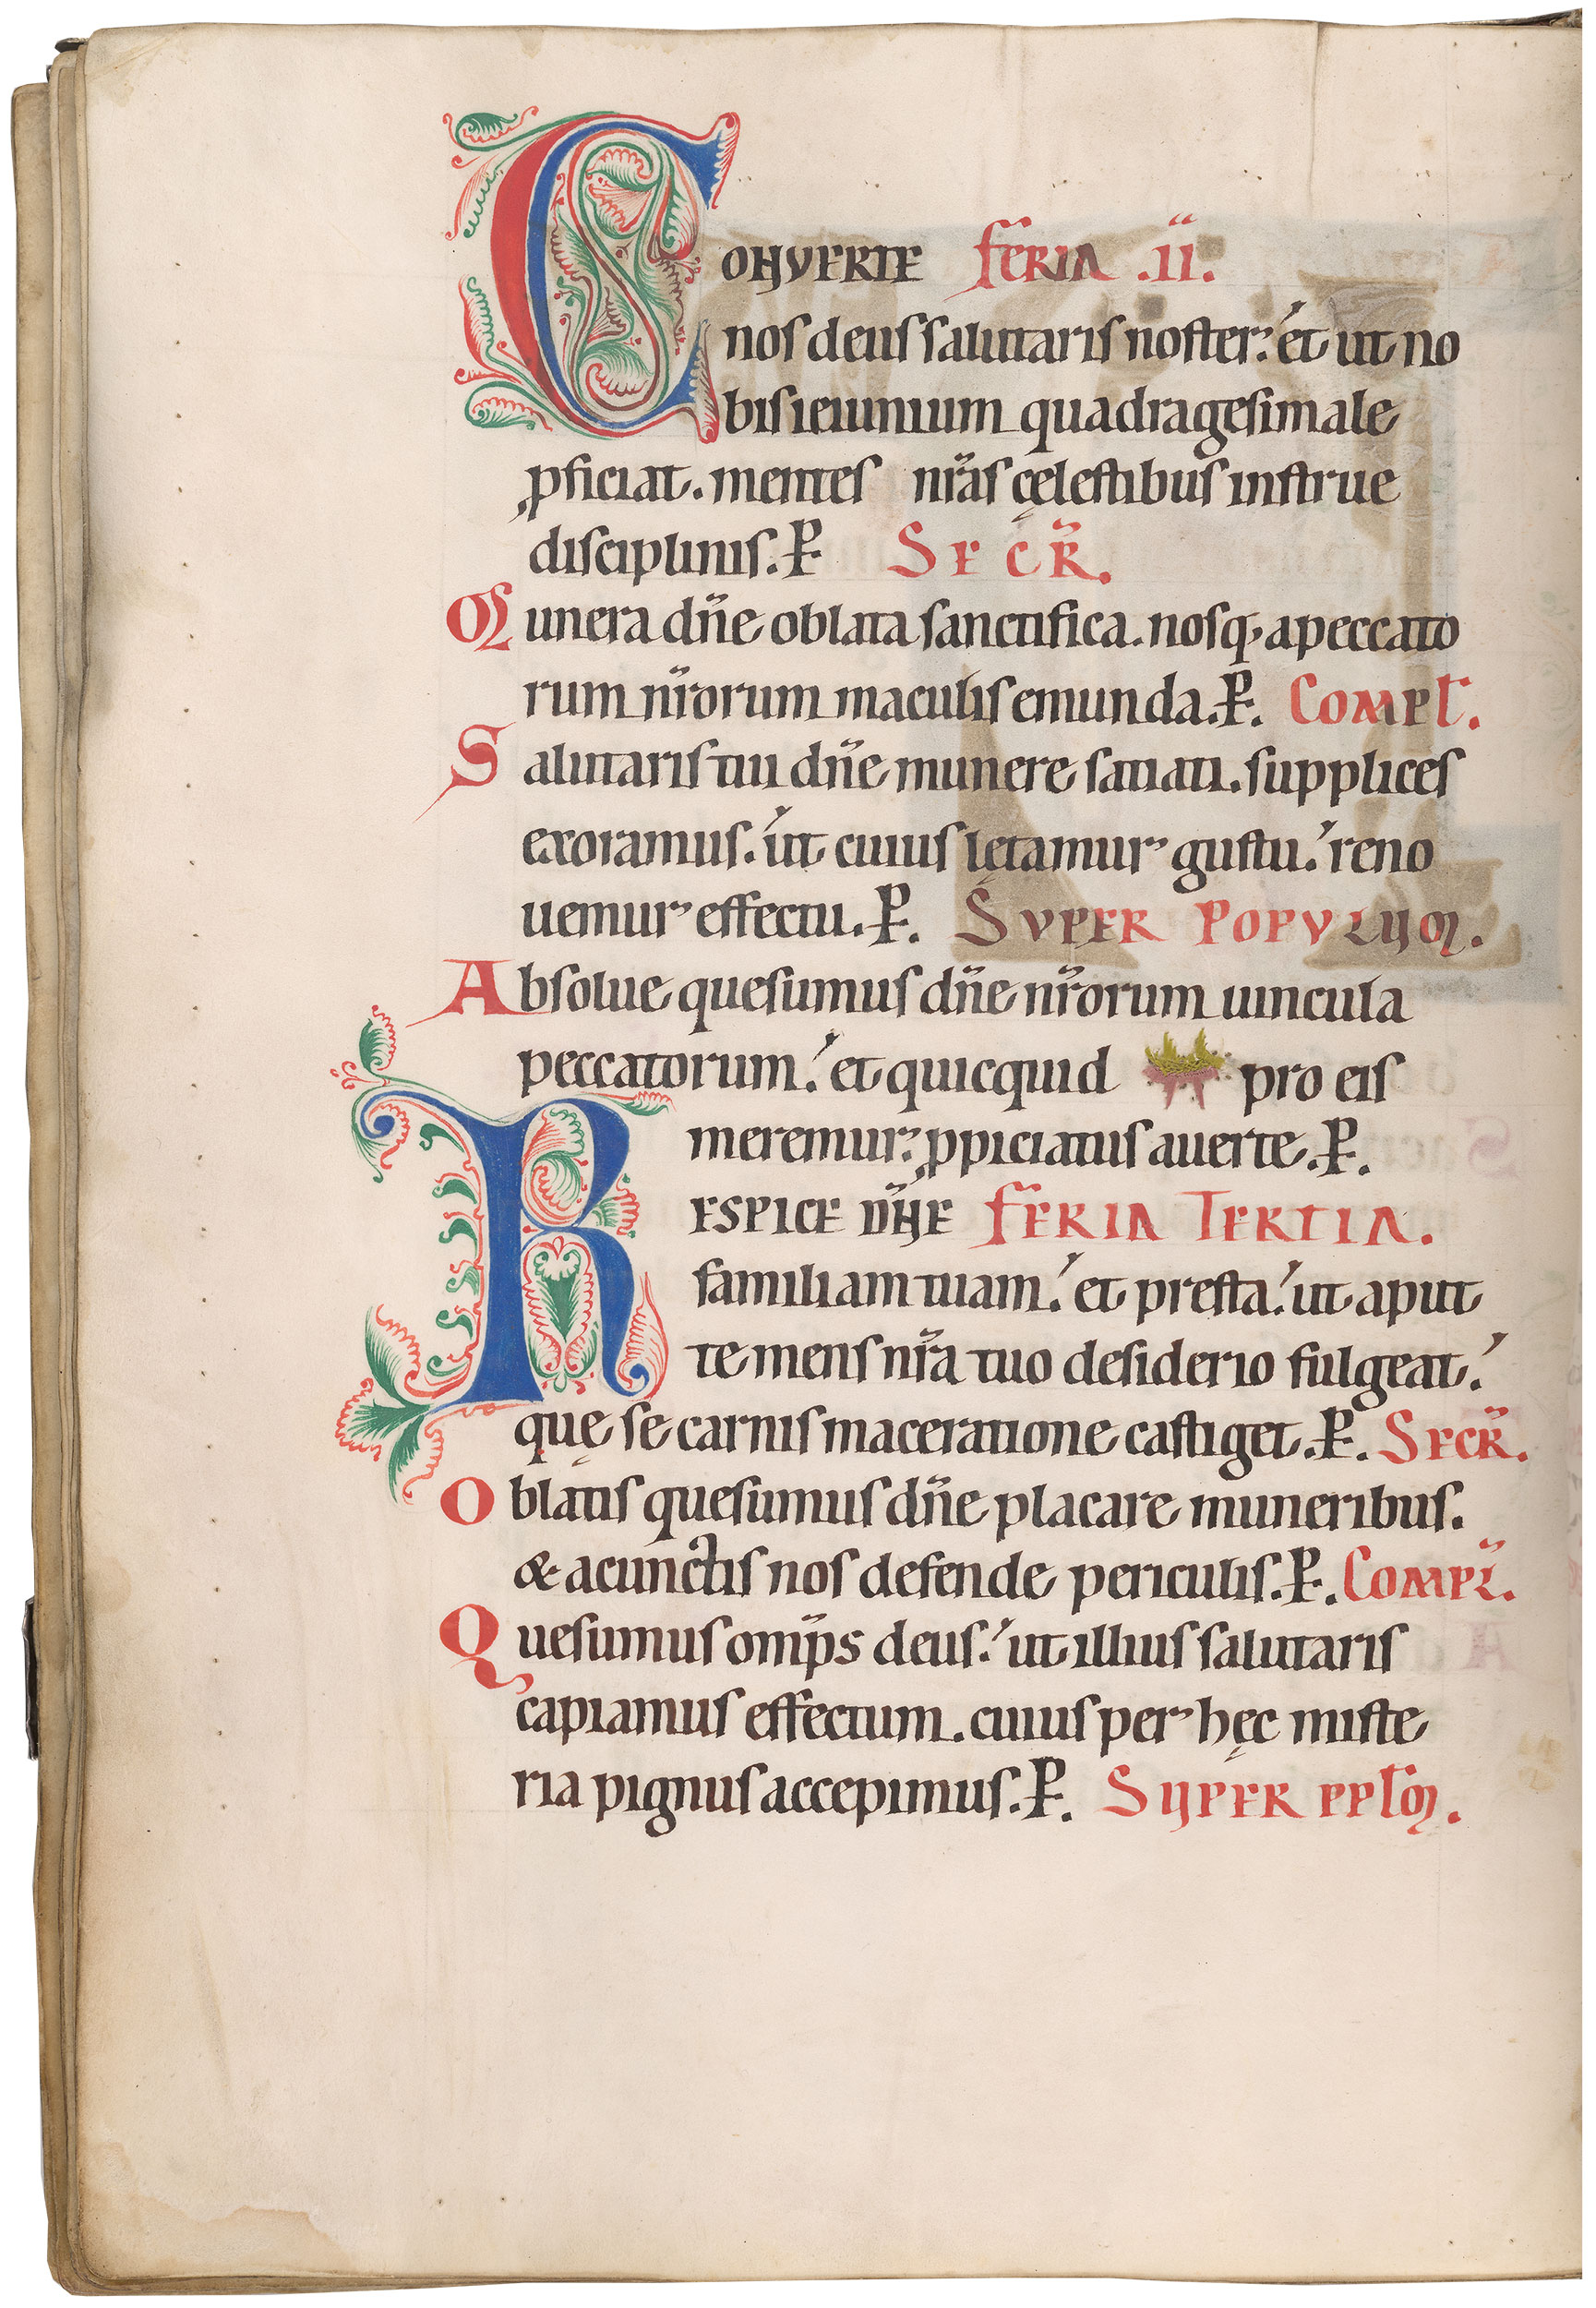 CONVERTE FERIA .II.
nos deus salutaris noster: et ut no
bis ieiunium quadragesimale
ꝓficiat. mentes nr̄as cęlestibus instrue
disciplinis. P. SECR̄.
Munera dn̄e oblata sanctifica. nosq; a peccato
rum nr̄orum maculis emunda. P. COMPL̄.
Salutaris tui dn̄e munere satiati. supplices
exoramus. ut cuius lętamur gustu. reno
uemur effectu. P. SUPER POPULUM.
Absolue quesumus dn̄e nr̄orum uincula
peccatorum. et quicquid pro eis
meremur: ꝓpiciatus auerte. P.
RESPICE DN̄E FERIA TERTIA.
familiam tuam. et presta. ut aput
te mens nr̄a tuo desiderio fulgeat.
quę se carnis maceratione castiget. P. SECR̄.
Oblatis quesumus dn̄e placare muneribus.
& a cunctis nos defende periculis. P. COMPL̄.
Quesumus omp̄s deus. ut illius salutaris
capiamus effectum. cuius per hęc miste
ria pignus accepimus. P. SUPER PPL̄M.